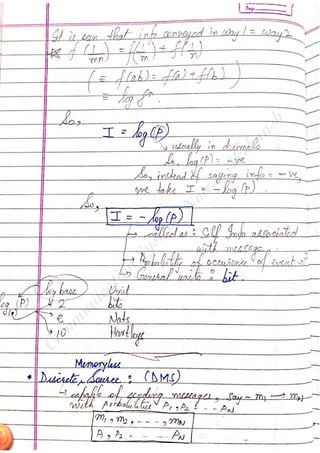 It is seen that info conveyed in way 1 = way 2
f(1/mn) = f(1/m) + f(1/n)
(≡ f(ab) = f(a) + f(b))
≡ log fn.
So,
I = log(P)
↳ usually in decimals
So, log(P) = -ve.
So, instead of saying info = -ve,
we take I = -log(P).
So,
I = -log(P)
↳ called as: Self Info associated
with message
↳ Probability of occurence of event
↳ General units: bit.
log base Unit
log (P) 2 bits
e Nats
10 Hartleys
Memoryless
• Discrete, Source : (DMS)
↳ capable of sending messages, say - m1 → mN
with probabilities P1, P2, ... PN
m1, m2, ----, mN
P1, P2 .... PN